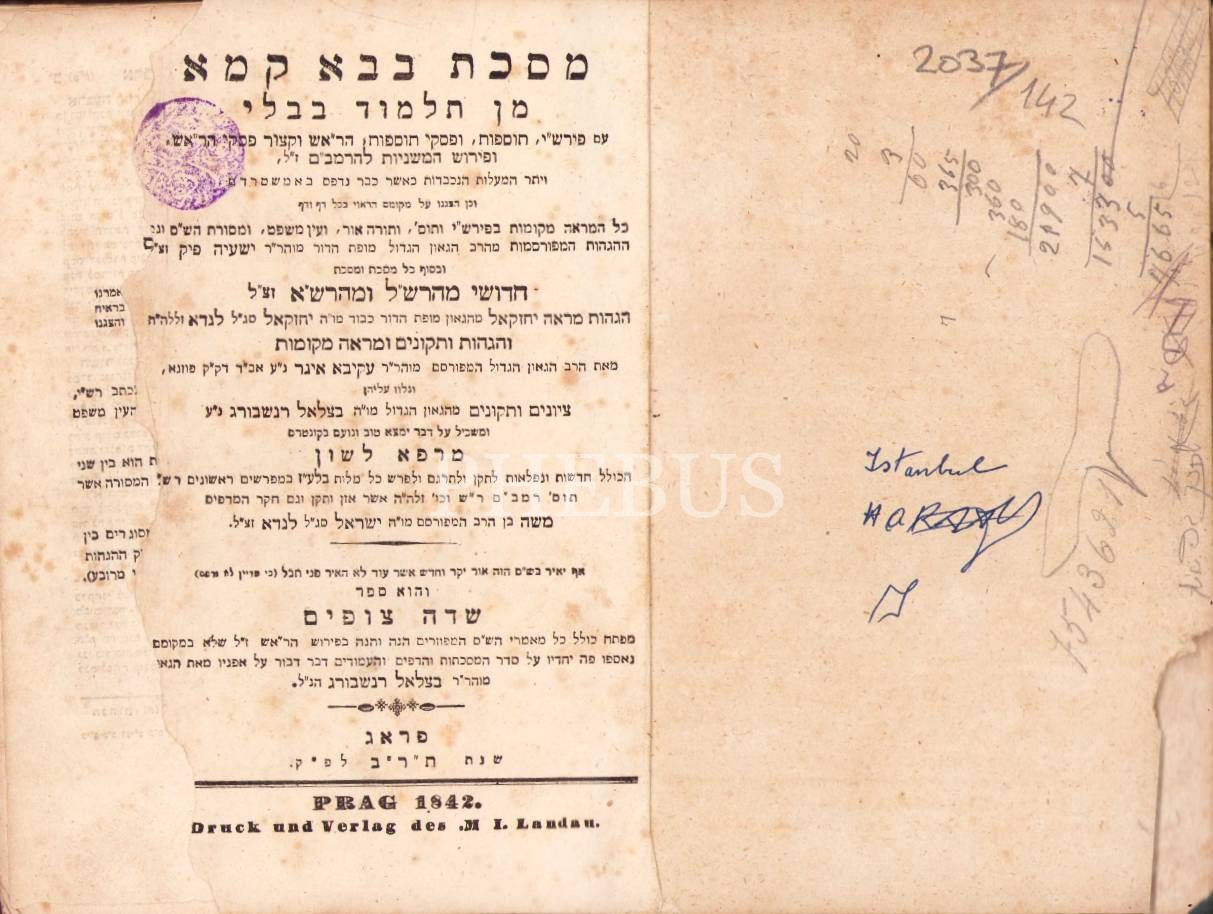 מסכת בבא קמא
מן תלמוד בבלי
עם פירש"י, תוספות, ופסקי תוספות, הרא"ש וקצור פסקי הרא"ש,
ופירוש המשניות להרמב"ם ז"ל,
ויתר המעלות הנכבדות כאשר כבר נדפס באמשטרדם
וכן הצגנו על מקומם הראוי בכל דף ודף
כל המראה מקומות בפירש"י ותוס', ותורה אור, ועין משפט, ומסורת הש"ס
ההגהות המפורסמות מהרב הגאון הגדול מופת הדור מוהר"ר ישעיה פיק זצ"ל
ובסוף כל מסכת ומסכת
חדושי מהרש"ל ומהרש"א זצ"ל
הגהות מראה יחזקאל מהגאון מופת הדור כבוד מו"ה יחזקאל סג"ל לנדא זללה"ה
והגהות ותקונים ומראה מקומות
מאת הרב הגאון הגדול המפורסם מוהר"ר עקיבא איגר נ"ע אב"ד דק"ק פוזנא,
ונלוו עליהן
ציונים ותקונים מהגאון הגדול מו"ה בצלאל רנשבורג נ"ע
ומשכיל על דבר ימצא טוב ונועם בקונטרס
מרפא לשון
הכולל חדשות ונפלאות לתקן ולתרגם ולפרש כל מלות בלע"ז במפרשים ראשונים רש"י
תוס' רמב"ם ר"ש וכו' זלה"ה אשר אזן ותקן וגם חקר המדפיס
משה בן הרב המפורסם מו"ה ישראל סג"ל לנדא זצ"ל.
אף יאיר בש"ס הזה אור יקר וחדש אשר עוד לא האיר פני תבל
והוא ספר
שדה צופים
מפתח כולל כל מאמרי הש"ס המפוזרים הנה והנה בפירוש הרא"ש ז"ל שלא במקומם
נאספו פה יחדיו על סדר המסכתות והדפים והעמודים דבר דבור על אפניו מאת הגאון
מוהר"ר בצלאל רנשבורג הנ"ל.
פראג
שנת ת"ר"י"ב לפ"ק.
PRAG 1842.
Druck und Verlag des .M I. Landau.
אמרנו
בראיח
והצגנו
כתב רש"י,
העין משפט
ת הוא בין שני
המסורה אשר
סוגרים בין
ק ההגהות
מרובע).
PHEBUS
2037
142
20
3
60
365
300
360
180
21900
7
153300
5
Istanbul
754369